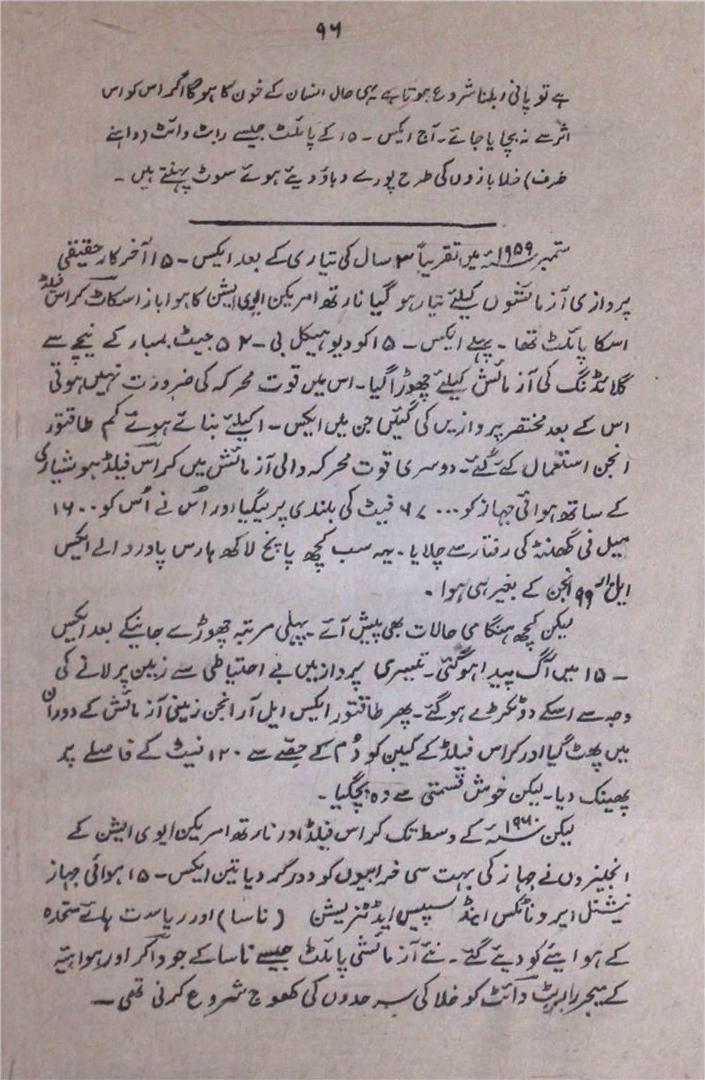 ۹۶
ہے تو پانی ابلنا شروع ہوتا ہے یہی حال انسان کے خون کا ہو گا اگر اس کو اس
اثر سے نہ بچایا جائے۔ آج ایکس ۔ ۱۵ کے پائلٹ جیسے رابٹ وائٹ (داہنے
طرف) خلا بازوں کی طرح پورے دباؤ دیئے ہوئے سوٹ پہنتے ہیں ۔
ستمبر ۱۹۵۹ء میں تقریباً ۳ سال کی تیاری کے بعد ایکس ۔ ۱۵ آخر کار حقیقی
پروازی آزمائشوں کیلئے تیار ہو گیا نارتھ امریکن ایوی ایشن کا ہوا باز اسکاٹ کراس فیلڈ
اسکا پائلٹ تھا ۔ پہلے ایکس ۔ ۱۵ کو دیو ہیکل بی ۔ ۵۲ جیٹ بمبار کے نیچے سے
گلائڈنگ کی آزمائش کیلئے چھوڑا گیا۔ اس میں قوت محرکہ کی ضرورت نہیں ہوتی
اس کے بعد مختصر پروازیں کی گئیں جن میں ایکس ۔ ۱ کیلئے بنائے ہوئے کم طاقتور
انجن استعمال کئے گئے۔ دوسری قوت محرکہ والی آزمائش میں کراس فیلڈ ہوشیاری
کے ساتھ ہوائی جہاز کو ۶۷۰۰۰ فیٹ کی بلندی پر لیگیا اور اُس نے اُس کو ۱۶۰۰
میل فی گھنٹہ کی رفتار سے چلایا ۔ یہ سب کچھ پانچ لاکھ ہارس پاور والے ایکس
ایل آر ۹۹ انجن کے بغیر ہی ہوا ۔
لیکن کچھ ہنگامی حالات بھی پیش آئے ۔ پہلی مرتبہ چھوڑے جانیکے بعد ایکس
۔ ۱۵ میں آگ پیدا ہو گئی۔ تیسری پرواز میں بے احتیاطی سے زمین پر لانے کی
وجہ سے اسکے دو ٹکڑے ہو گئے ۔ پھر طاقتور ایکس ایل آر انجن زمینی آزمائش کے دوران
میں پھٹ گیا اور کراس فیلڈ کے کیبن کو دُم کے حصے سے ۱۲۰ فیٹ کے فاصلے پر
پھینک دیا۔ لیکن خوش قسمتی سے وہ بچگیا ۔
لیکن ۱۹۶۰ء کے وسط تک کراس فیلڈ اور نارتھ امریکن ایوی ایشن کے
انجنیروں نے جہاز کی بہت سی خرابیوں کو دور کر دیا تین ایکس ۔ ۱۵ ہوائی جہاز
نیشنل ایروناٹکس اینڈ سپیس ایڈمنسٹریشن (ناسا) اور ریاست ہائے متحدہ
کے ہوابیئے کو دیئے گئے ۔ نئے آزمائشی پائلٹ جیسے ناسا کے جو واکر اور ہوابیئہ
کے میجر رابرٹ وائٹ کو خلا کی سرحدوں کی کھوج شروع کرنی تھی ۔